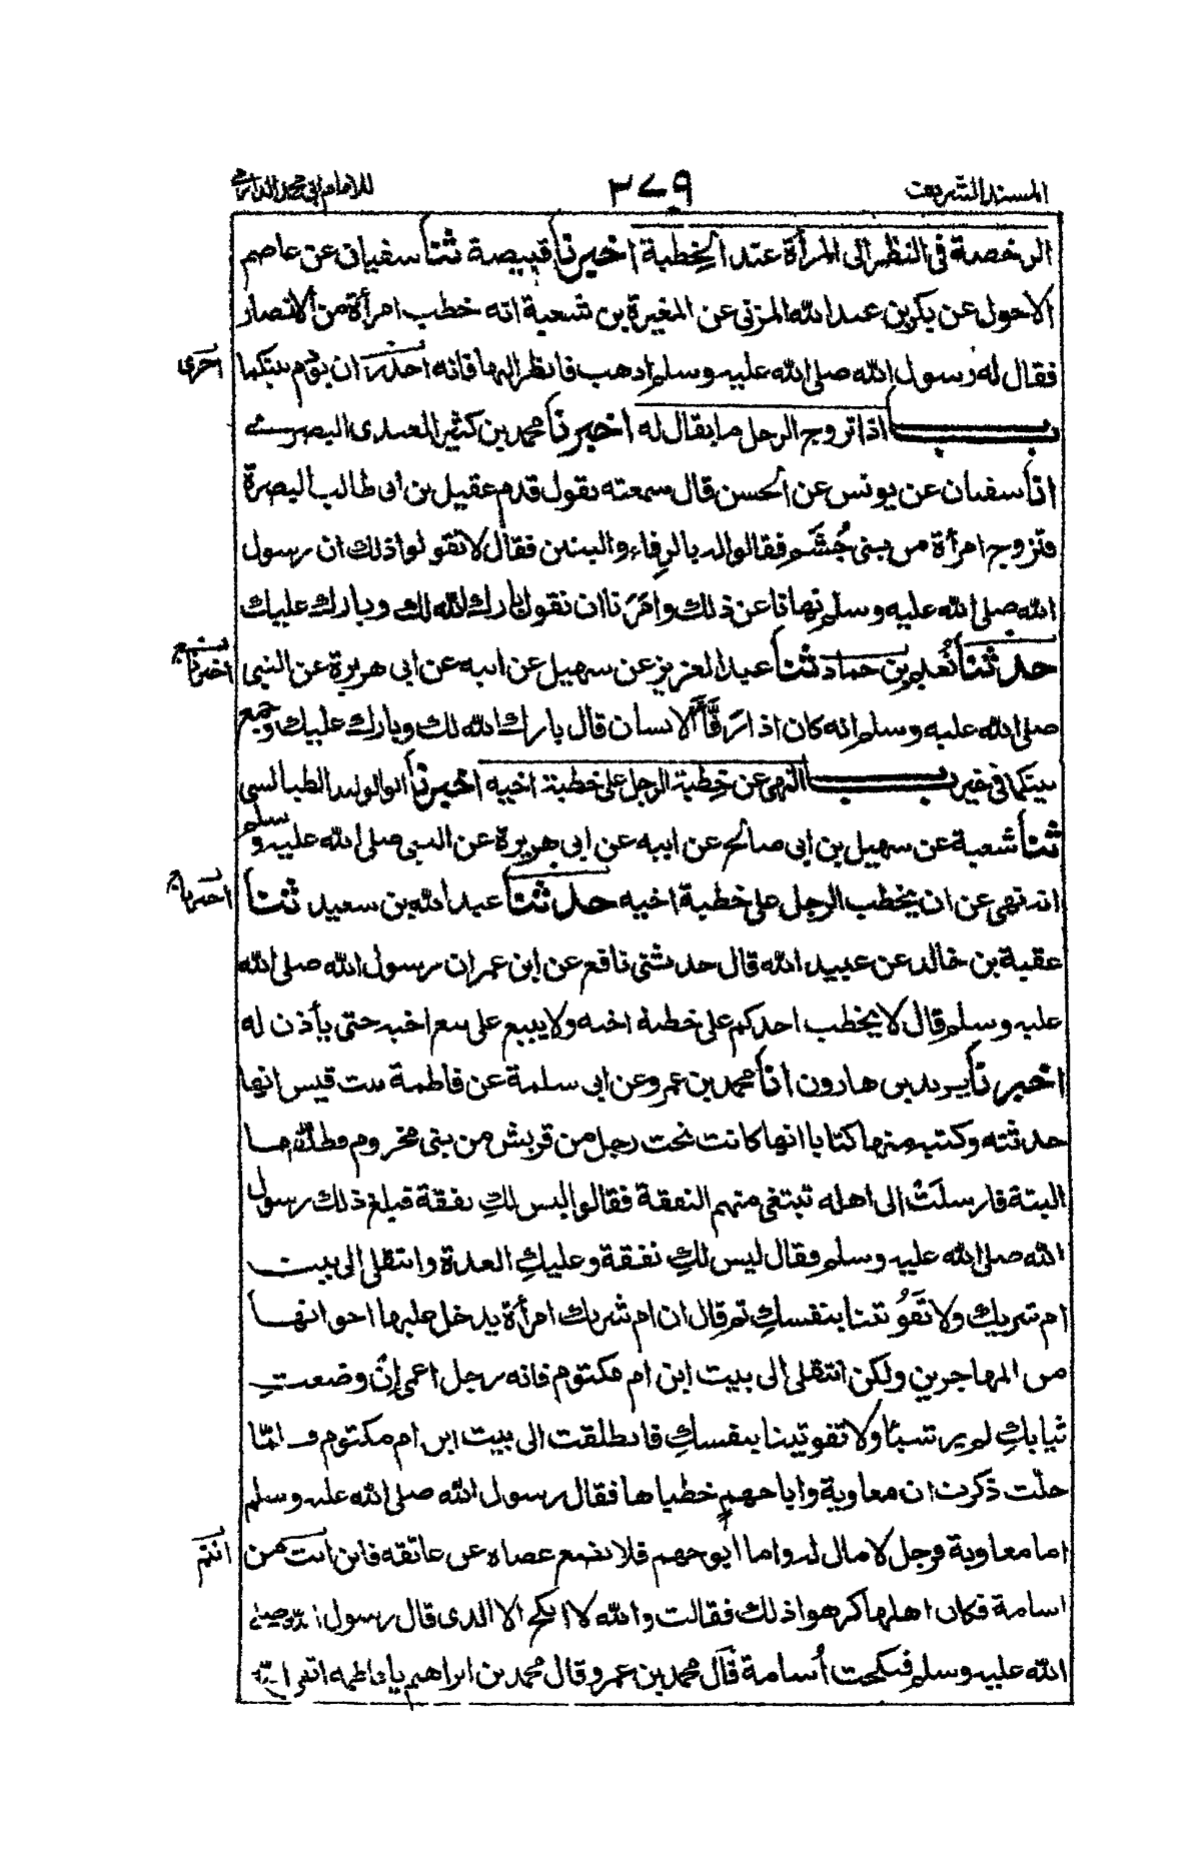 المسند الشريف ٣٧٩ للامام ابي محمد الدارمي
الرخصة فى النظر الى المرأة عند الخطبة اخبرنا قبيصة ثنا سفيان عن عاصم
الاحول عن بكر بن عبد الله المزنى عن المغيرة بن شعبة انه خطب امرأة من الانصار
فقال له رسول الله صلى الله عليه وسلم اذهب فانظر اليها فانه احذر ان يؤدم بينكما
احرى
بــــاب اذا تزوج الرجل ما يقال له اخبرنا محمد بن كثير العبدى البصرى
انا سفيان عن يونس عن الحسن قال سمعته يقول قدم عقيل بن ابى طالب البصرة
فتزوج امرأة من بنى جُشَم فقالوا له بالرِفاء والبنين فقال لا تقولوا ذلك ان رسول
الله صلى الله عليه وسلم نهانا عن ذلك وامَرَنا ان نقول بارك الله لك وبارك عليك
حدثنا نُعيم بن حماد ثنا عبد العزيز عن سهيل عن ابيه عن ابى هريرة عن النبى
اخبرنا
صلى الله عليه وسلم انه كان اذا رَفَّأَ الانسان قال بارك الله لك وبارك عليك وجمع
بينكما فى خير بــــاب النهى عن خِطبة الرجل على خطبة اخيه اخبرنا ابو الوليد الطيالسى
ثنا شعبة عن سهيل بن ابى صالح عن ابيه عن ابى هريرة عن النبى صلى الله عليه وسلم
انه نهى عن ان يخطب الرجل على خطبة اخيه حدثنا عبد الله بن سعيد ثنا
اخبرنا
عقبة بن خالد عن عبيد الله قال حدثنى نافع عن ابن عمر ان رسول الله صلى الله
عليه وسلم قال لا يخطب احدكم على خطبة اخيه ولا يبيع على بيع اخيه حتى يأذن له
اخبرنا يزيد بن هارون انا محمد بن عمرو عن ابى سلمة عن فاطمة بنت قيس انها
حدثته وكتبه منها كتابا انها كانت تحت رجل من قريش من بنى مخزوم فطلقها
البتة فارسلَتْ الى اهله تبتغى منهم النفقة فقالوا ليس لكِ نفقة فبلغ ذلك رسول
الله صلى الله عليه وسلم فقال ليس لكِ نفقة وعليكِ العدة وانتقلى الى بيت
ام شريك ولا تَفُوتينا بنفسكِ ثم قال ان ام شريك امرأة يدخل عليها اخوانها
من المهاجرين ولكن انتقلى الى بيت ابن ام مكتوم فانه رجل اعمى إنْ وضعتِ
ثيابكِ لم ير شيئا ولا تفوتينا بنفسكِ فانطلقت الى بيت ابن ام مكتوم فلما
حلّت ذكرت ان معاوية وابا جهم خطباها فقال رسول الله صلى الله عليه وسلم
اما معاوية فرجل لا مال له واما ابو جهم فلا يضع عصاه عن عاتقه فاين انت من
انتم
اسامة فكان اهلها كرهوا ذلك فقالت والله لا انكح الا الذى قال رسول الله صلى
الله عليه وسلم فنكحت اُسامة قال محمد بن عمرو قال محمد بن ابراهيم يا فاطمة اتقى الله